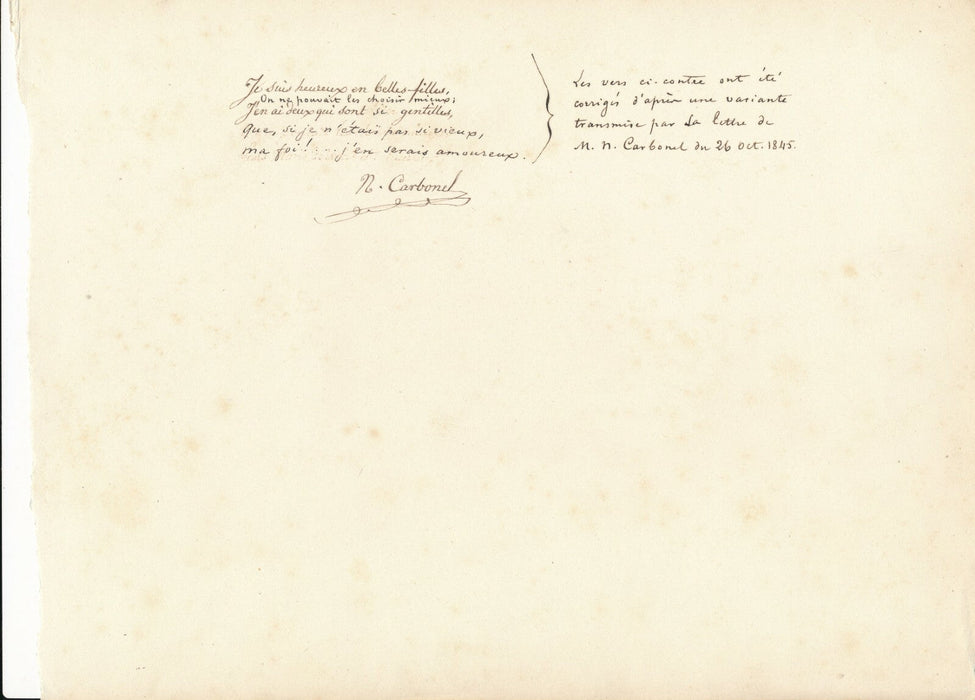 Je suis heureux en belles-filles,
On ne pouvait les choisir mieux;
J'en ai deux qui sont si gentilles,
que, si je n'étais pas si vieux,
ma foi! ... j'en serais amoureux.
N. Carbonel
Les vers ci-contre ont été
corrigés d'après une variante
transmise par la lettre de
M. N. Carbonel du 26 Oct. 1845.